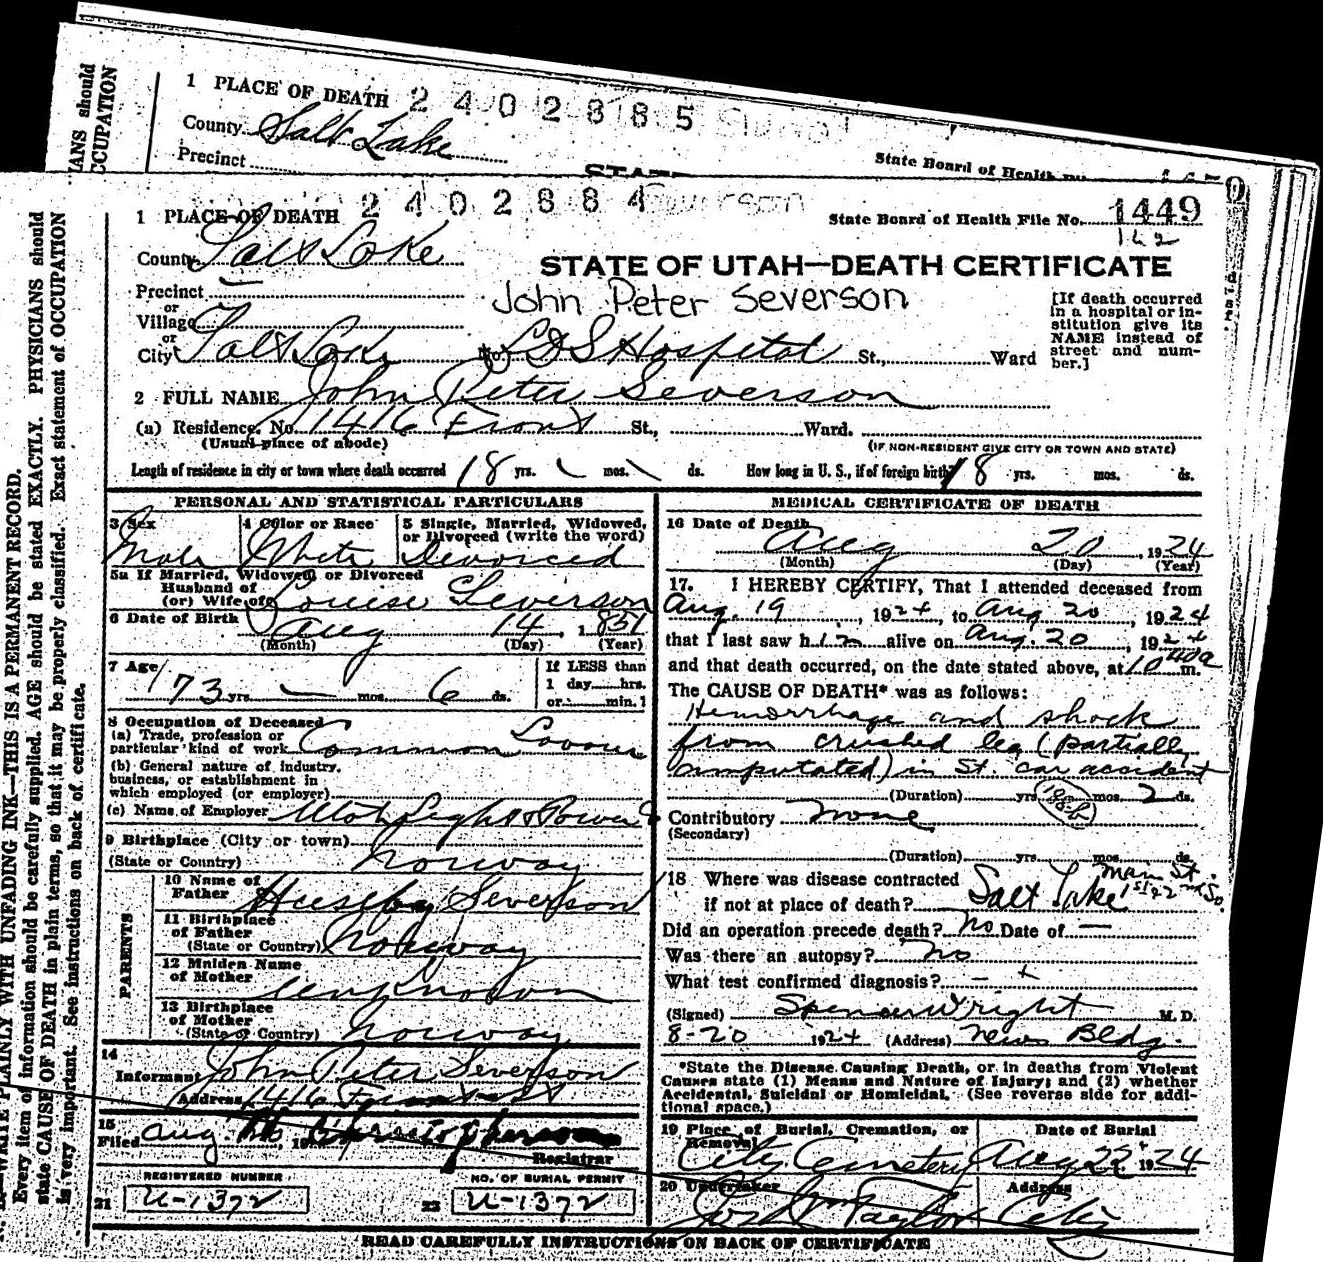 IANS should
CCUPATION
1 PLACE OF DEATH 2402885
County Salt Lake
Precinct
State Board of Health
1 PLACE OF DEATH 2402884 Severson
State Board of Health File No. 1449
162
County Salt Lake
STATE OF UTAH—DEATH CERTIFICATE
Precinct —
John Peter Severson
or
Village
or
City Salt Lake No. LDS Hospital St., Ward
[If death occurred
in a hospital or in-
stitution give its
NAME instead of
street and num-
ber.]
2 FULL NAME John Peter Severson
(a) Residence. No. 1416 Front St., Ward.
(Usual place of abode)
(IF NON-RESIDENT GIVE CITY OR TOWN AND STATE)
Length of residence in city or town where death occurred 18 yrs. mos. ds. How long in U. S., if of foreign birth? 18 yrs. mos. ds.
PERSONAL AND STATISTICAL PARTICULARS
3 Sex
Male
4 Color or Race
White
5 Single, Married, Widowed,
or Divorced (write the word)
Devorced
5a If Married, Widowed, or Divorced
Husband of
(or) Wife of Louise Severson
6 Date of Birth Aug 14, 1851
(Month) (Day) (Year)
7 Age
73 yrs. — mos. 6 ds.
If LESS than
1 day hrs.
or min.
8 Occupation of Deceased
(a) Trade, profession or
particular kind of work Common Labour
(b) General nature of industry,
business, or establishment in
which employed (or employer)
(c) Name of Employer Utah Light & Power
9 Birthplace (City or town)
(State or Country) Norway
PARENTS
10 Name of
Father Severson
11 Birthplace
of Father
(State or Country) Norway
12 Maiden Name
of Mother unknown
13 Birthplace
of Mother
(State or Country) Norway
14
Informant John Peter Severson
Address 1416 Front St
15
Filed Aug. , 19
Registrar
REGISTERED NUMBER
21 U-1372
NO. OF BURIAL PERMIT
22 U-1372
MEDICAL CERTIFICATE OF DEATH
16 Date of Death
Aug 20, 1924
(Month) (Day) (Year)
17. I HEREBY CERTIFY, That I attended deceased from
Aug. 19, 1924, to Aug. 20, 1924
that I last saw him alive on Aug. 20, 1924
and that death occurred, on the date stated above, at 10 40a m.
The CAUSE OF DEATH* was as follows:
Hemorrhage and shock
from crushed leg (partially
amputated) in St. car accident
(Duration) yrs. mos. 2 ds.
Contributory None
(Secondary)
(Duration) yrs. mos. ds.
18 Where was disease contracted
if not at place of death? Salt Lake Main St. 1st & 2nd So.
Did an operation precede death? No Date of —
Was there an autopsy? No
What test confirmed diagnosis? — +
(Signed) Spencer Wright M. D.
8-20 1924 (Address) News Bldg.
*State the Disease Causing Death, or in deaths from Violent
Causes state (1) Means and Nature of Injury; and (2) whether
Accidental, Suicidal or Homicidal. (See reverse side for addi-
tional space.)
19 Place of Burial, Cremation, or
Removal
City Cemetery
Date of Burial
Aug 22, 1924
20 Undertaker
Jos Wm Taylor
Address
City
READ CAREFULLY INSTRUCTIONS ON BACK OF CERTIFICATE
WRITE PLAINLY WITH UNFADING INK—THIS IS A PERMANENT RECORD.
Every item of information should be carefully supplied. AGE should be stated EXACTLY. PHYSICIANS should
state CAUSE OF DEATH in plain terms, so that it may be properly classified. Exact statement of OCCUPATION
is very important. See instructions on back of certificate.